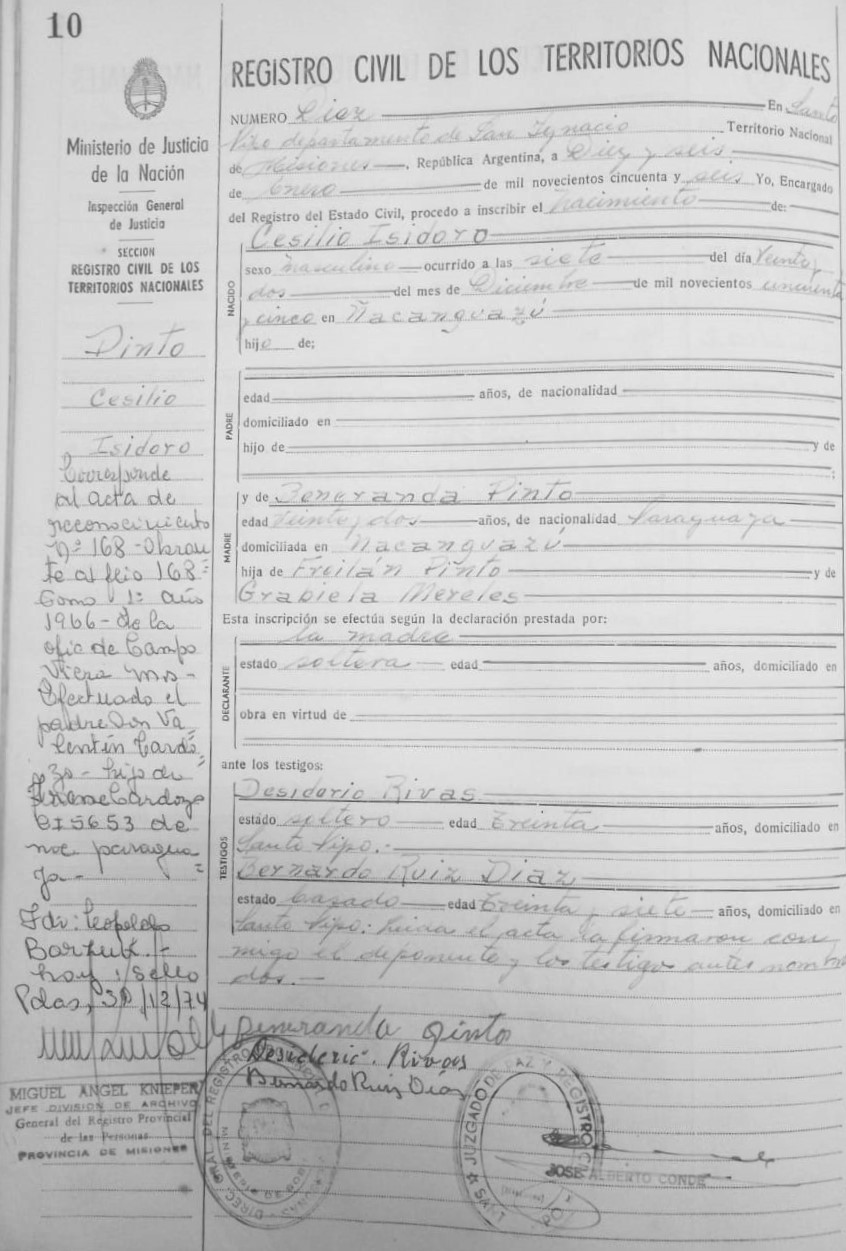 10
Ministerio de Justicia
de la Nación
Inspección General
de Justicia
SECCION
REGISTRO CIVIL DE LOS
TERRITORIOS NACIONALES
Pinto
Cesilio
Isidoro
Corresponde
al acta de
reconocimiento
Nº 168 - Obran
te al folio 168 =
Tomo 1º año
1966 - de la
ofic de Campo
Viera Mns -
Efectuado el
padre Don Va
lentín Cardo
zo - hijo de
Irene Cardozo
CI 5653 de
nac. paragua
ya -
Fdo: Leopoldo
hay 1 sello
Pdas, 30/12/74
MIGUEL ANGEL KNIEPER
JEFE DIVISION DE ARCHIVO
General del Registro Provincial
de las Personas
PROVINCIA DE MISIONES
REGISTRO CIVIL DE LOS TERRITORIOS NACIONALES
NUMERO Diez En Santo
Pipo departamento de San Ignacio Territorio Nacional
de Misiones, República Argentina, a Diez y seis
de Enero de mil novecientos cincuenta y seis Yo, Encargado
del Registro del Estado Civil, procedo a inscribir el nacimiento de:
NACIDO
Cesilio Isidoro
sexo masculino ocurrido a las siete del día Veinte y
dos del mes de Diciembre de mil novecientos cincuenta
y cinco en Ñacanguazú
hijo de;
PADRE
edad años, de nacionalidad
domiciliado en
hijo de y de
;
MADRE
y de Beneranda Pinto
edad Veinte y dos años, de nacionalidad Paraguaya
domiciliada en Ñacanguazú
hija de Freilán Pinto y de
Grabiela Mereles
Esta inscripción se efectúa según la declaración prestada por:
DECLARANTE
la madre
estado soltera edad años, domiciliado en
obra en virtud de
ante los testigos:
TESTIGOS
Desiderio Rivas
estado soltero edad Treinta años, domiciliado en
Santo Pipo.-
Bernardo Ruiz Diaz
estado Casado edad Treinta y siete años, domiciliado en
Santo Pipo: Leida el acta la firmaron con
migo el deponente y los testigos antes nombra
dos.-
Beneranda Pinto
Desiderio. Rivas
Bernardo Ruiz Días
JUZGADO DE PAZ Y REGISTRO CIVIL
JOSE ALBERTO CONDE